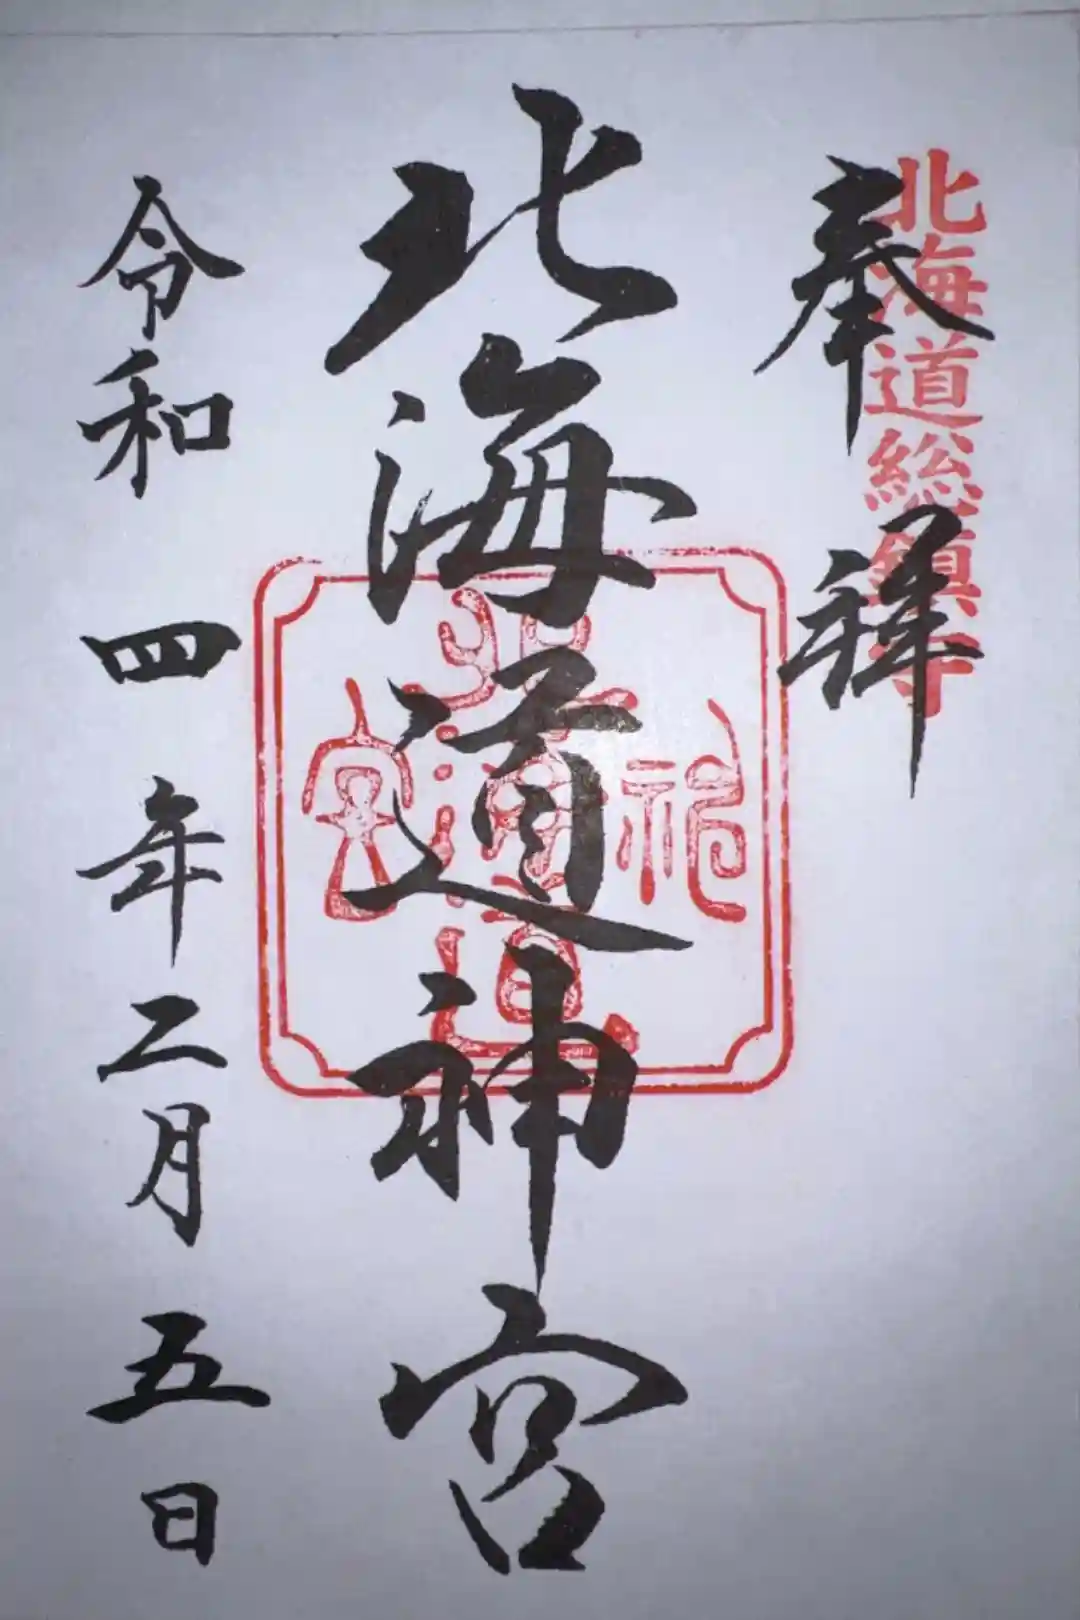 奉拝
北海道総鎮守
北海道神宮
北海道神宮
令和四年二月五日